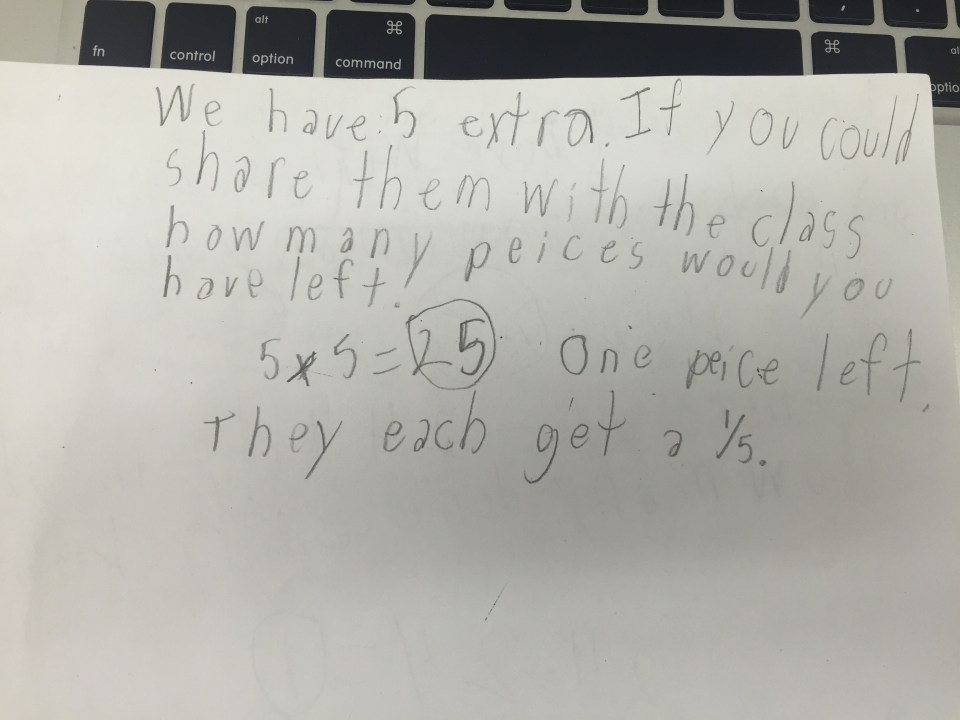 fn
control
alt
option
⌘
command
⌘
,
.
We have 5 extra. If you could
share them with the class
how many peices would you
have left!
5x5=25 One peice left.
They each get a 1/5.